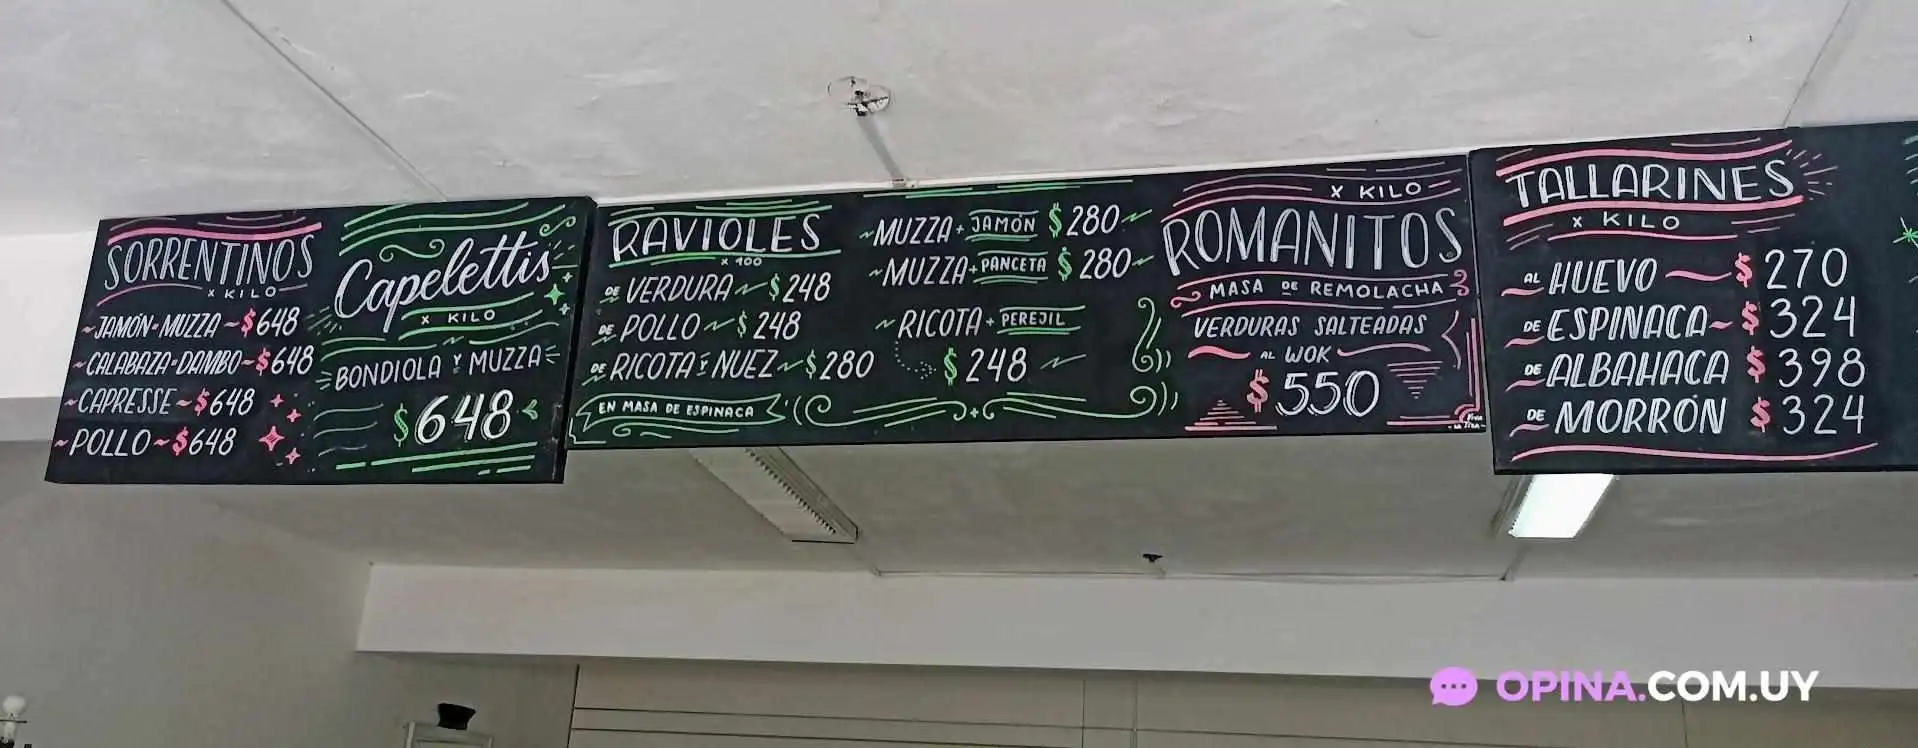 SORRENTINOS
x KILO
JAMÓN-MUZZA $648
CALABAZA-DAMBO $648
CAPRESSE $648
POLLO $648
Capelettis
x KILO
BONDIOLA Y MUZZA
$648
RAVIOLES
x 100
DE VERDURA $248
DE POLLO $248
DE RICOTA Y NUEZ $280
EN MASA DE ESPINACA
MUZZA + JAMÓN $280
MUZZA + PANCETA $280
RICOTA + PEREJIL
$248
x KILO
ROMANITOS
MASA DE REMOLACHA
VERDURAS SALTEADAS
AL WOK
$550
TALLARINES
x KILO
AL HUEVO $270
DE ESPINACA $324
DE ALBAHACA $398
DE MORRÓN $324
OPINA.COM.UY